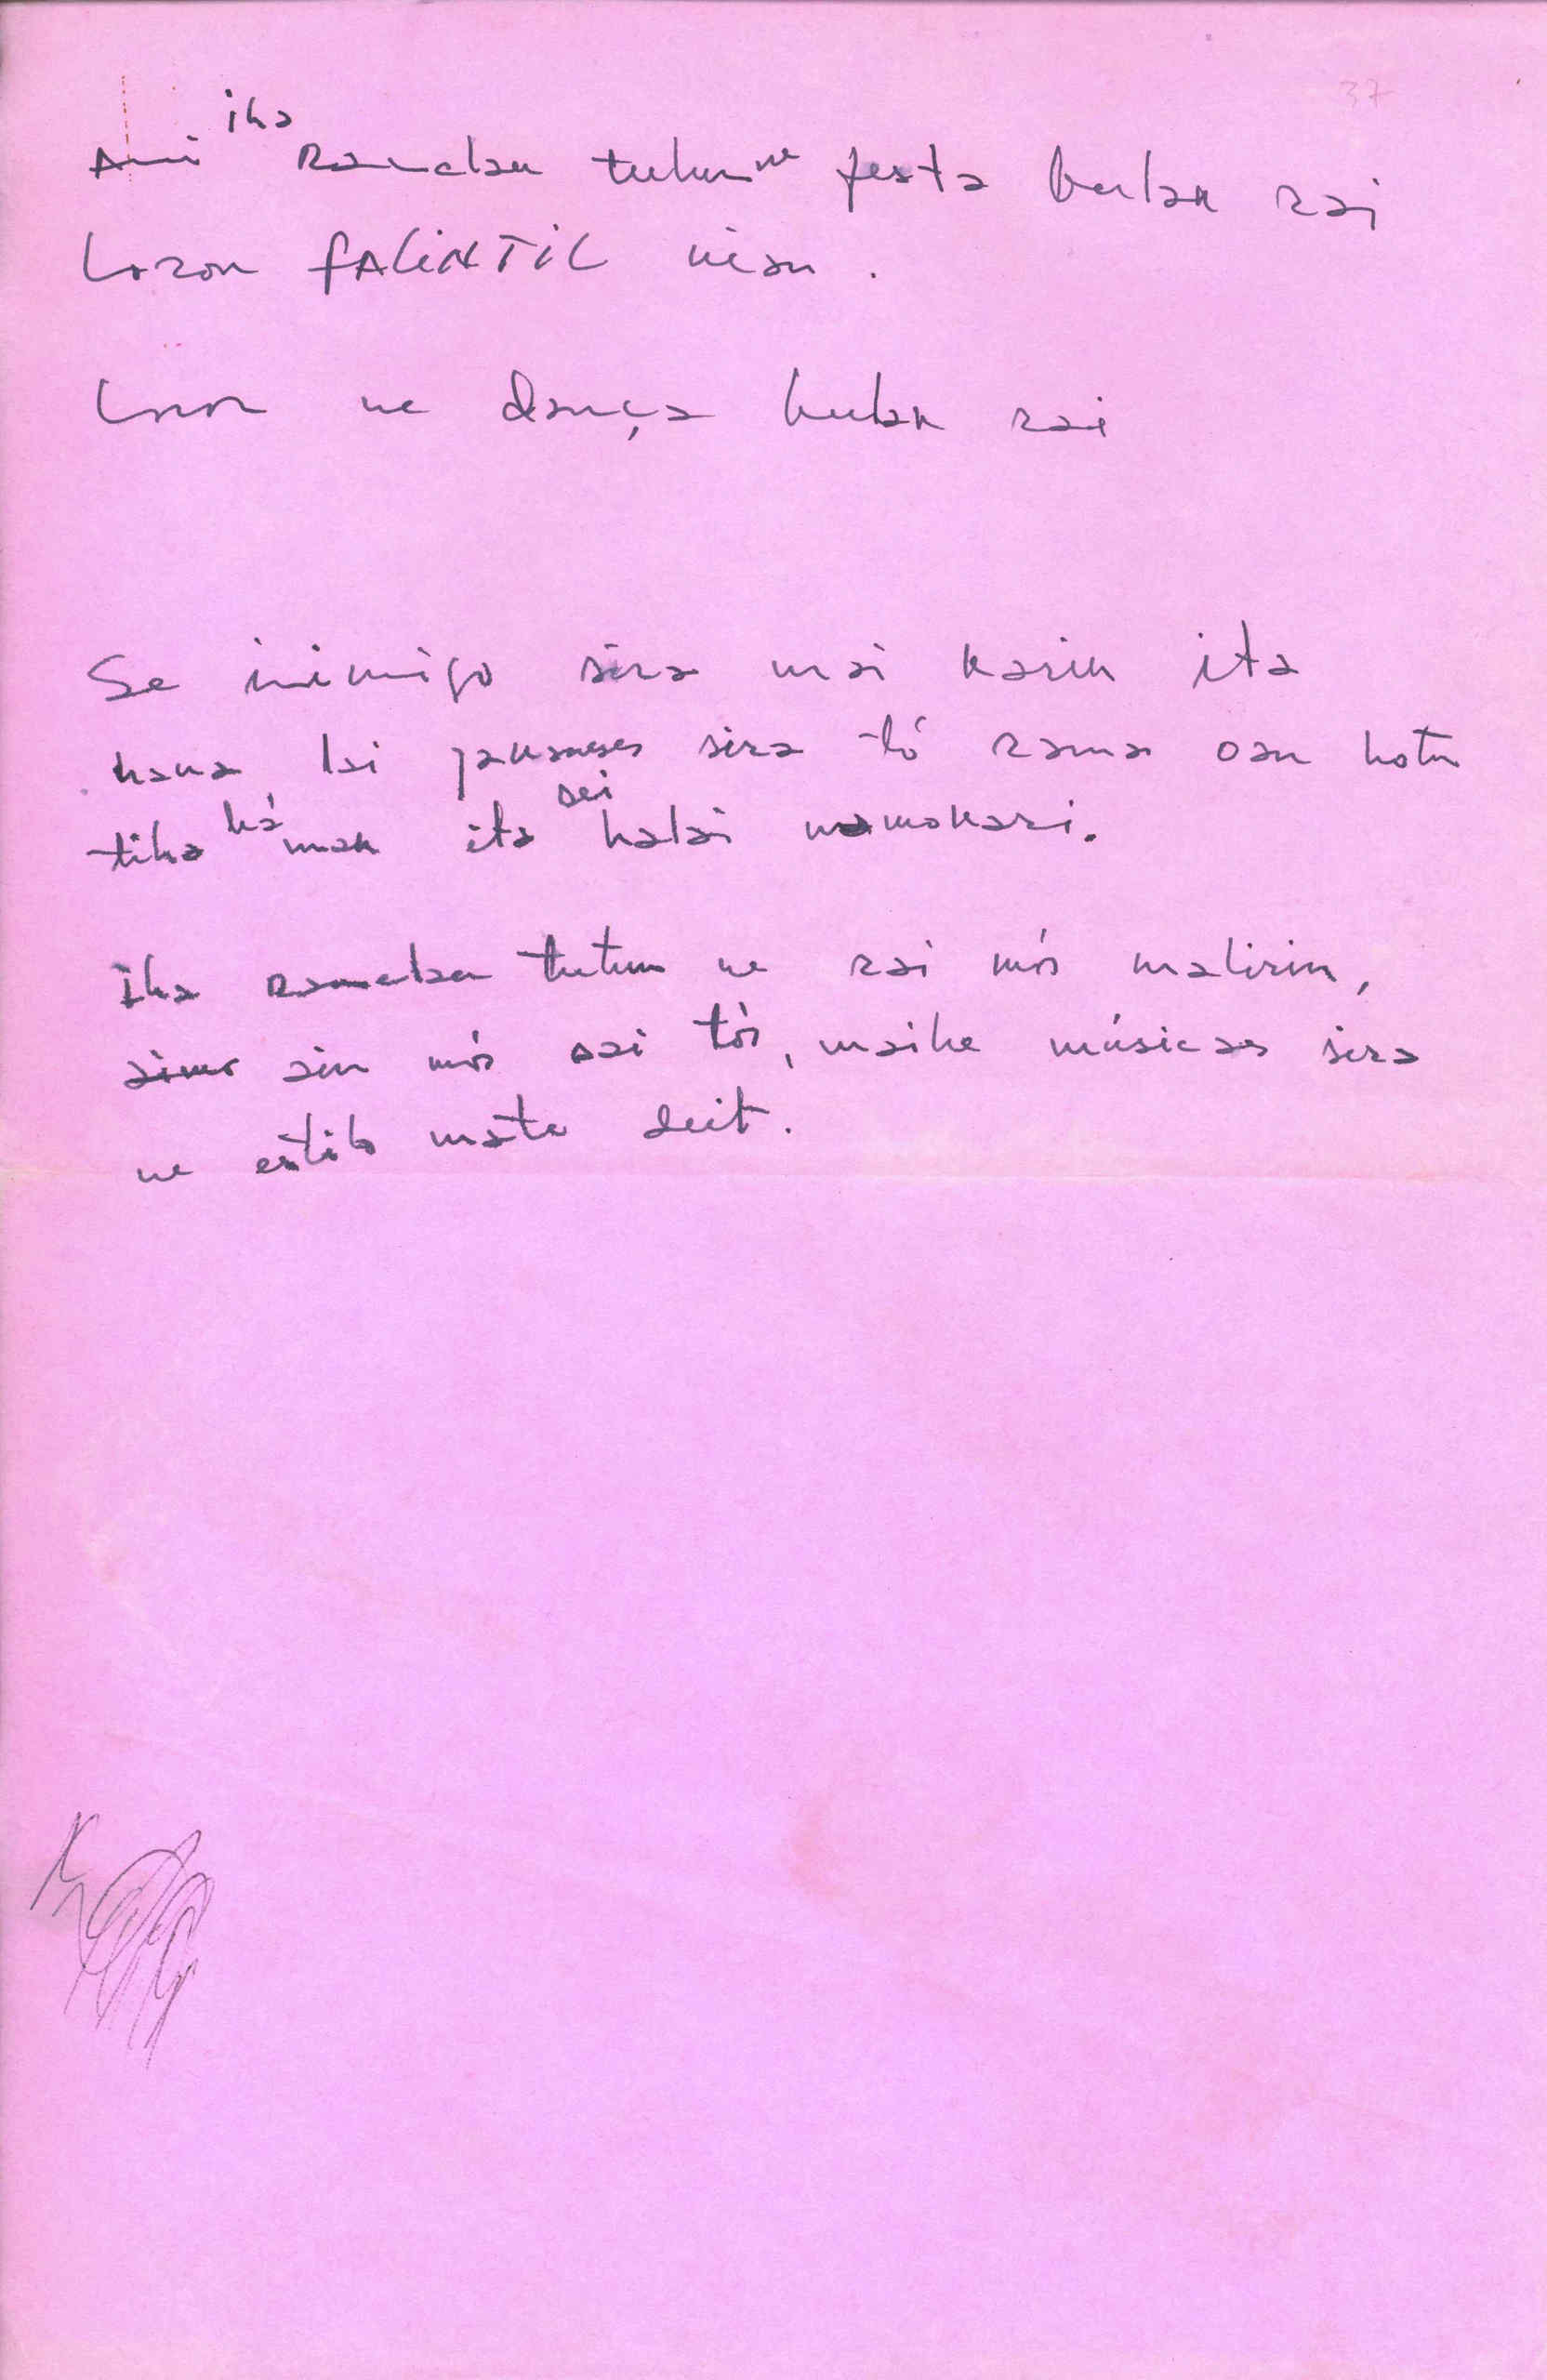 37
Ami iha Ramelau tutun ne festa bulak rai
Loron FALINTIL nian.
Loron ne dança bulak rai
Se inimigo sira mai karik ita
hana lai javaneses sira tó rama oan hotu
tiha ká mak ita sei halai namakari.
Iha Ramelau tutun ne rai mós malirin,
anin mós sai tós, maibe músicas sira
ne estilo mate deit.